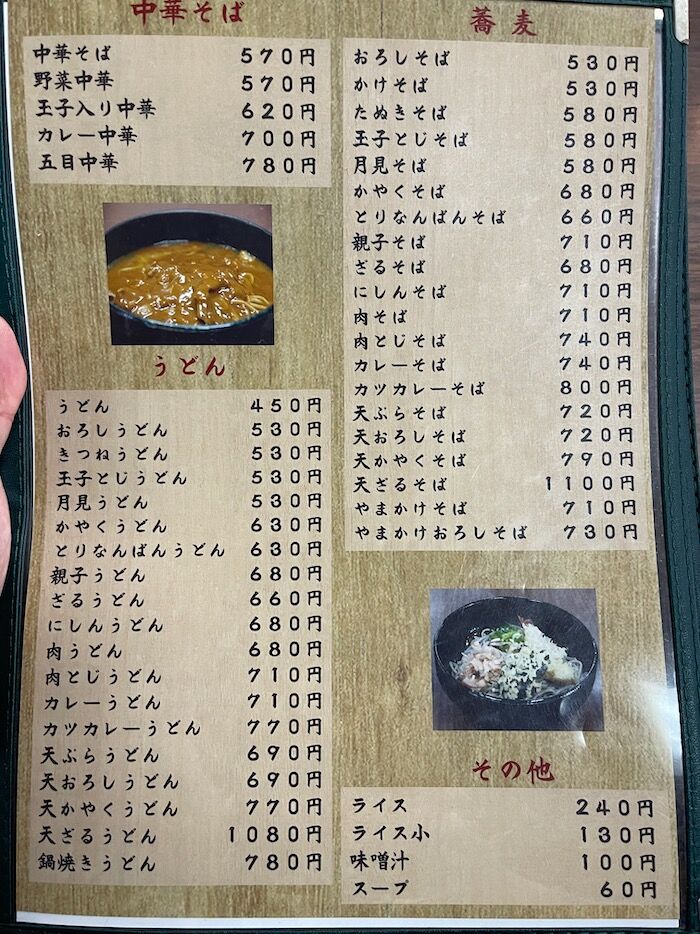 中華そば
中華そば 570円
野菜中華 570円
玉子入り中華 620円
カレー中華 700円
五目中華 780円
うどん
うどん 450円
おろしうどん 530円
きつねうどん 530円
玉子とじうどん 530円
月見うどん 530円
かやくうどん 630円
とりなんばんうどん 630円
親子うどん 680円
ざるうどん 660円
にしんうどん 680円
肉うどん 680円
肉とじうどん 710円
カレーうどん 710円
カツカレーうどん 770円
天ぷらうどん 690円
天おろしうどん 690円
天かやくうどん 770円
天ざるうどん 1080円
鍋焼きうどん 780円
蕎麦
おろしそば 530円
かけそば 530円
たぬきそば 580円
玉子とじそば 580円
月見そば 580円
かやくそば 680円
とりなんばんそば 660円
親子そば 710円
ざるそば 680円
にしんそば 710円
肉そば 710円
肉とじそば 740円
カレーそば 740円
カツカレーそば 800円
天ぷらそば 720円
天おろしそば 720円
天かやくそば 790円
天ざるそば 1100円
やまかけそば 710円
やまかけおろしそば 730円
その他
ライス 240円
ライス小 130円
味噌汁 100円
スープ 60円